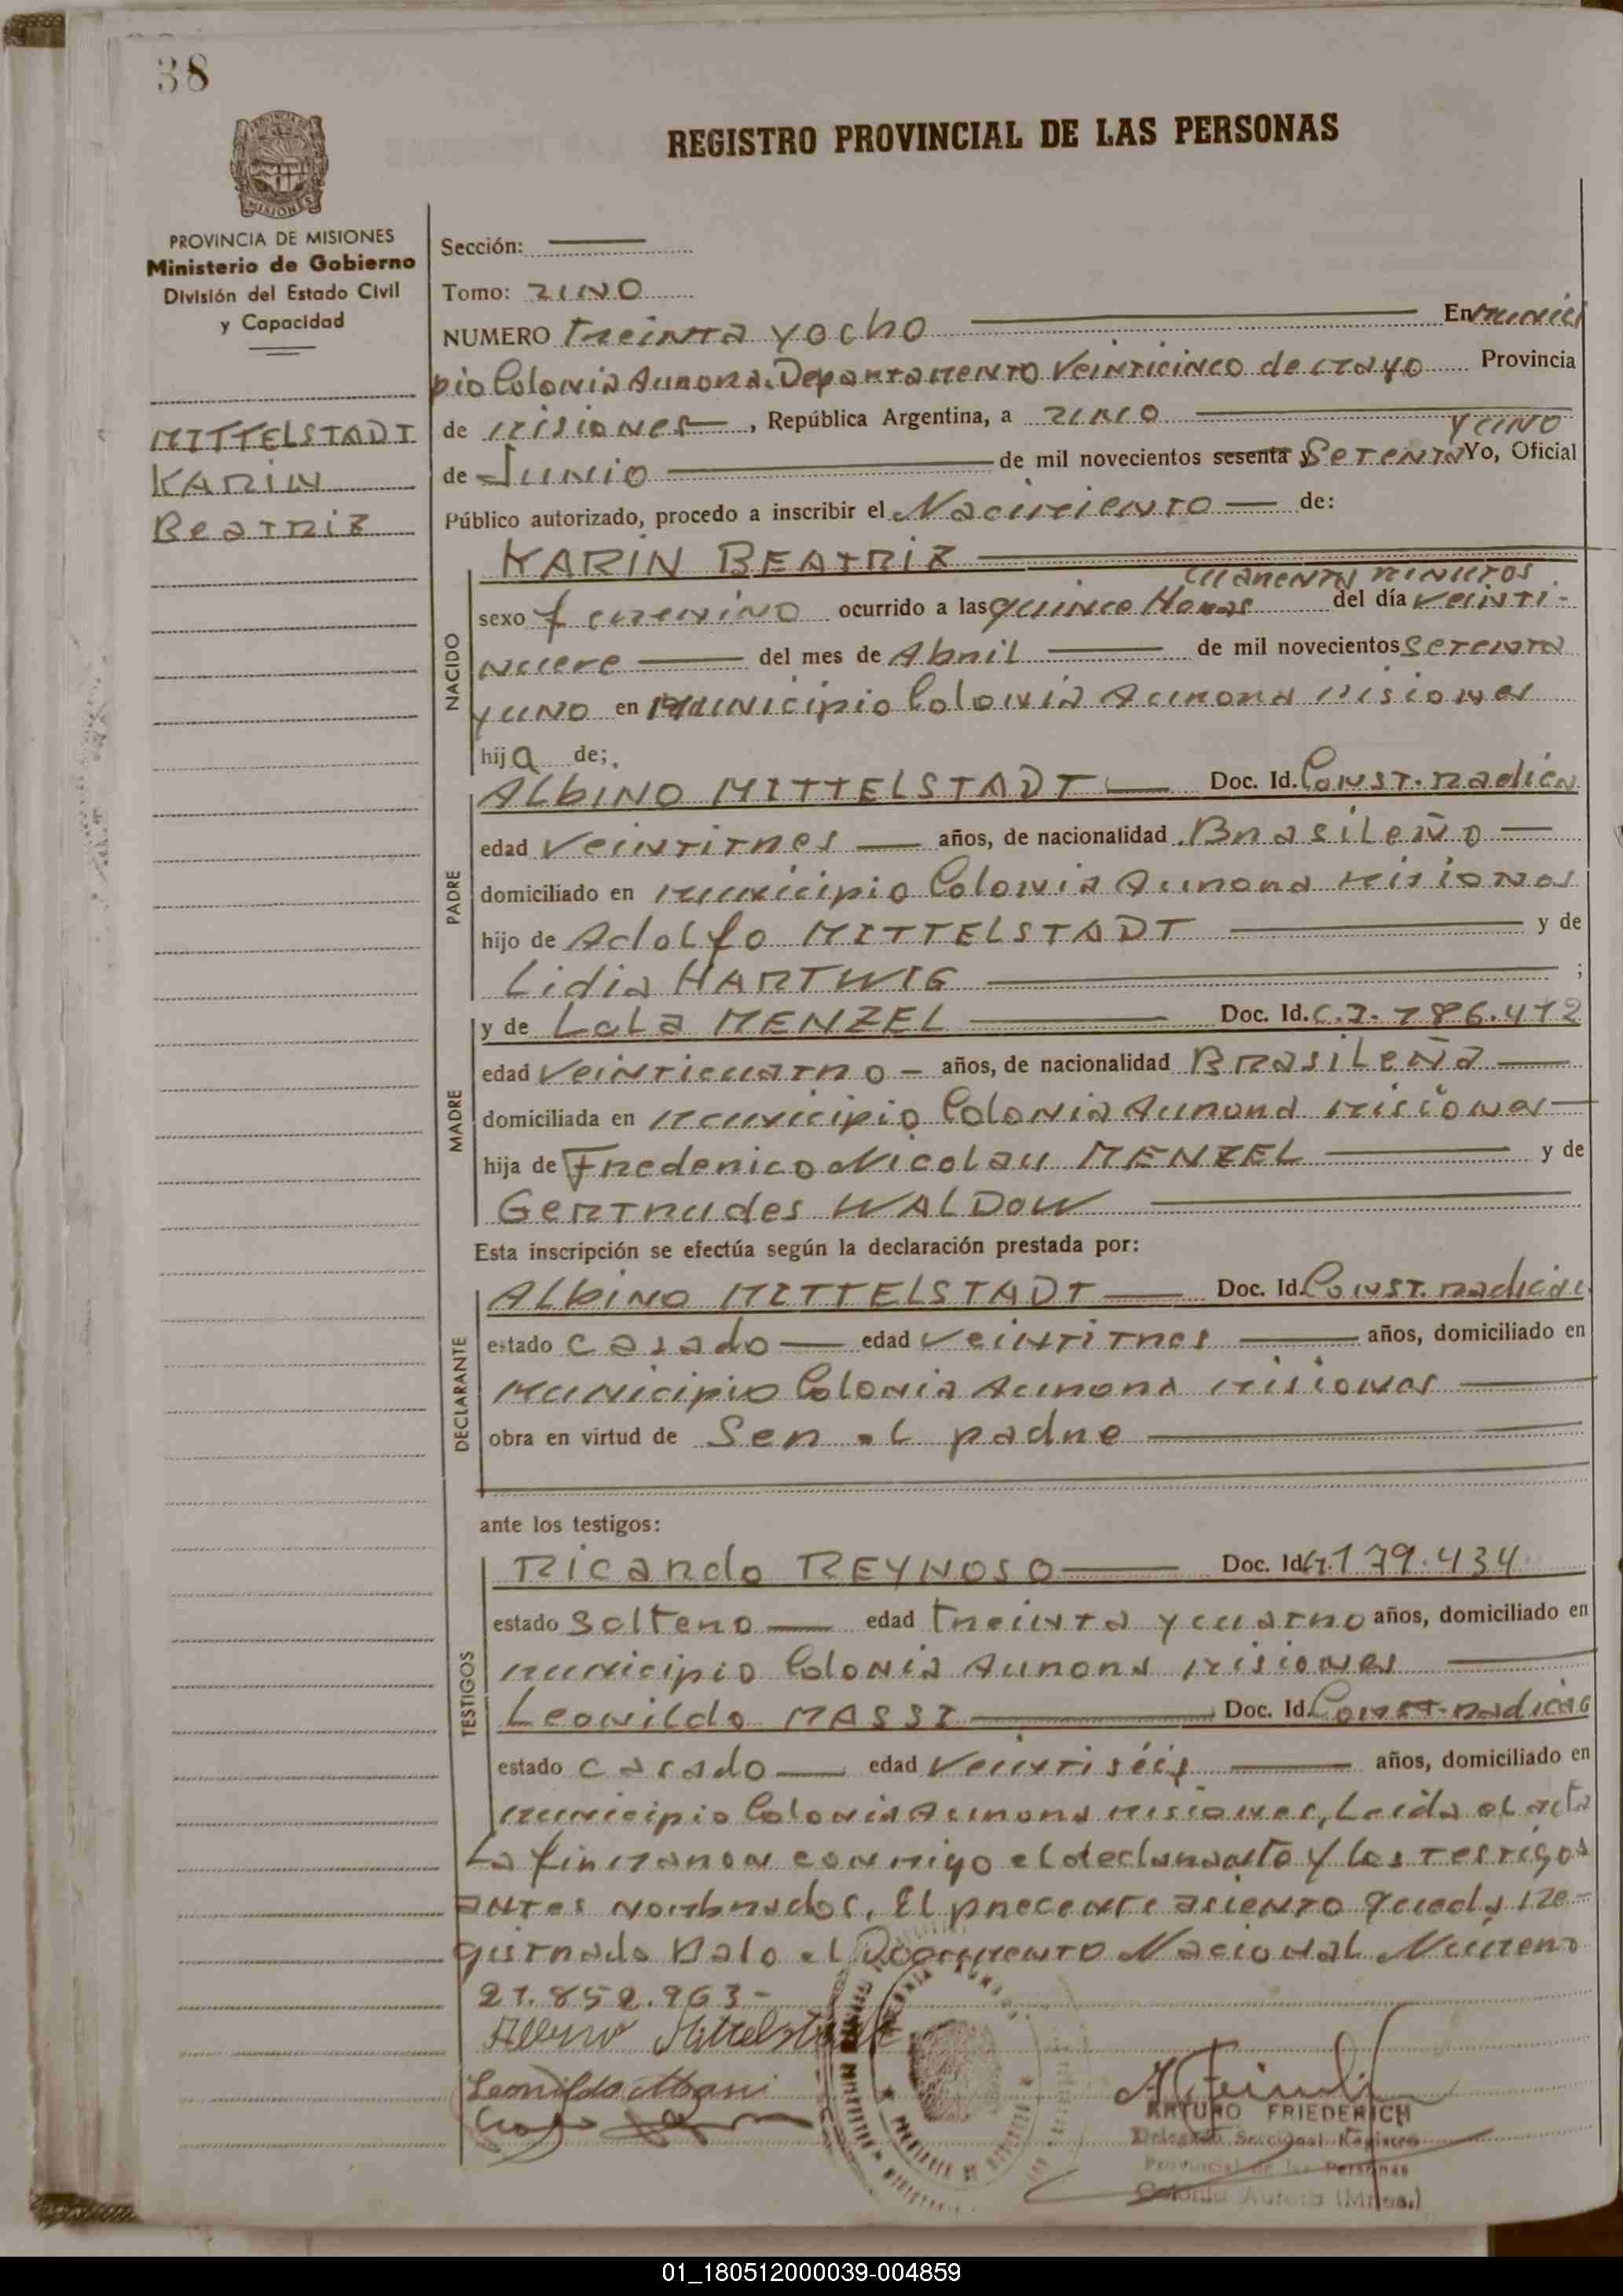 38
REGISTRO PROVINCIAL DE LAS PERSONAS
MISIONES
PROVINCIA DE MISIONES
Ministerio de Gobierno
División del Estado Civil
y Capacidad
MITTELSTADT
KARIN
Beatriz
Sección:
Tomo: 2 UNO
NUMERO treinta y ocho En munici
pio Colonia Aurora. Departamento Veinticinco de Mayo Provincia
de Misiones, República Argentina, a
y uno
de Junio de mil novecientos sesenta y Setenta Yo, Oficial
Público autorizado, procedo a inscribir el Nacimiento de:
KARIN BEATRIZ
cuarenta minutos
sexo femenino ocurrido a las quince Horas del día veinti-
nueve del mes de Abril de mil novecientos setenta
y uno en Municipio Colonia Aurora Misiones
hija de;
NACIDO
ALbINO MITTELSTADT Doc. Id. Const. radica
edad Veintitres años, de nacionalidad Brasileño
domiciliado en municipio Colonia Aurora Misiones
hijo de Adolfo MITTELSTADT y de
Lidia HARTWIG ;
PADRE
y de Lola MENZEL Doc. Id. C.I. 786.472
edad Veinticuatro años, de nacionalidad Brasileña
domiciliada en municipio Colonia Aurora Misiones
hija de Frederico Nicolau MENZEL y de
Gertrudes WALDOW
MADRE
Esta inscripción se efectúa según la declaración prestada por:
ALbINO MITTELSTADT Doc. Id. Const. radica
estado casado edad veintitres años, domiciliado en
Municipio Colonia Aurora Misiones
obra en virtud de Ser el padre
DECLARANTE
ante los testigos:
Ricardo REYNOSO Doc. Id. 179.434
estado soltero edad treinta y cuatro años, domiciliado en
municipio Colonia Aurora Misiones
Leonildo MASSI Doc. Id. Const. radica
estado casado edad Veintiséis años, domiciliado en
municipio Colonia Aurora Misiones, Leida el acta
La firmaron conmigo el declarante y los testigos
antes nombrados. El precente asiento queda re-
gistrado Balo el Documento Nacional Numero
21.852.963-
TESTIGOS
Albino Mittelstadt
Leonildo Massi
ARTURO FRIEDERICH
Delegado Seccional Registro
Provincial de las Personas
Colonia Aurora (Mnes.)
01_180512000039-004859